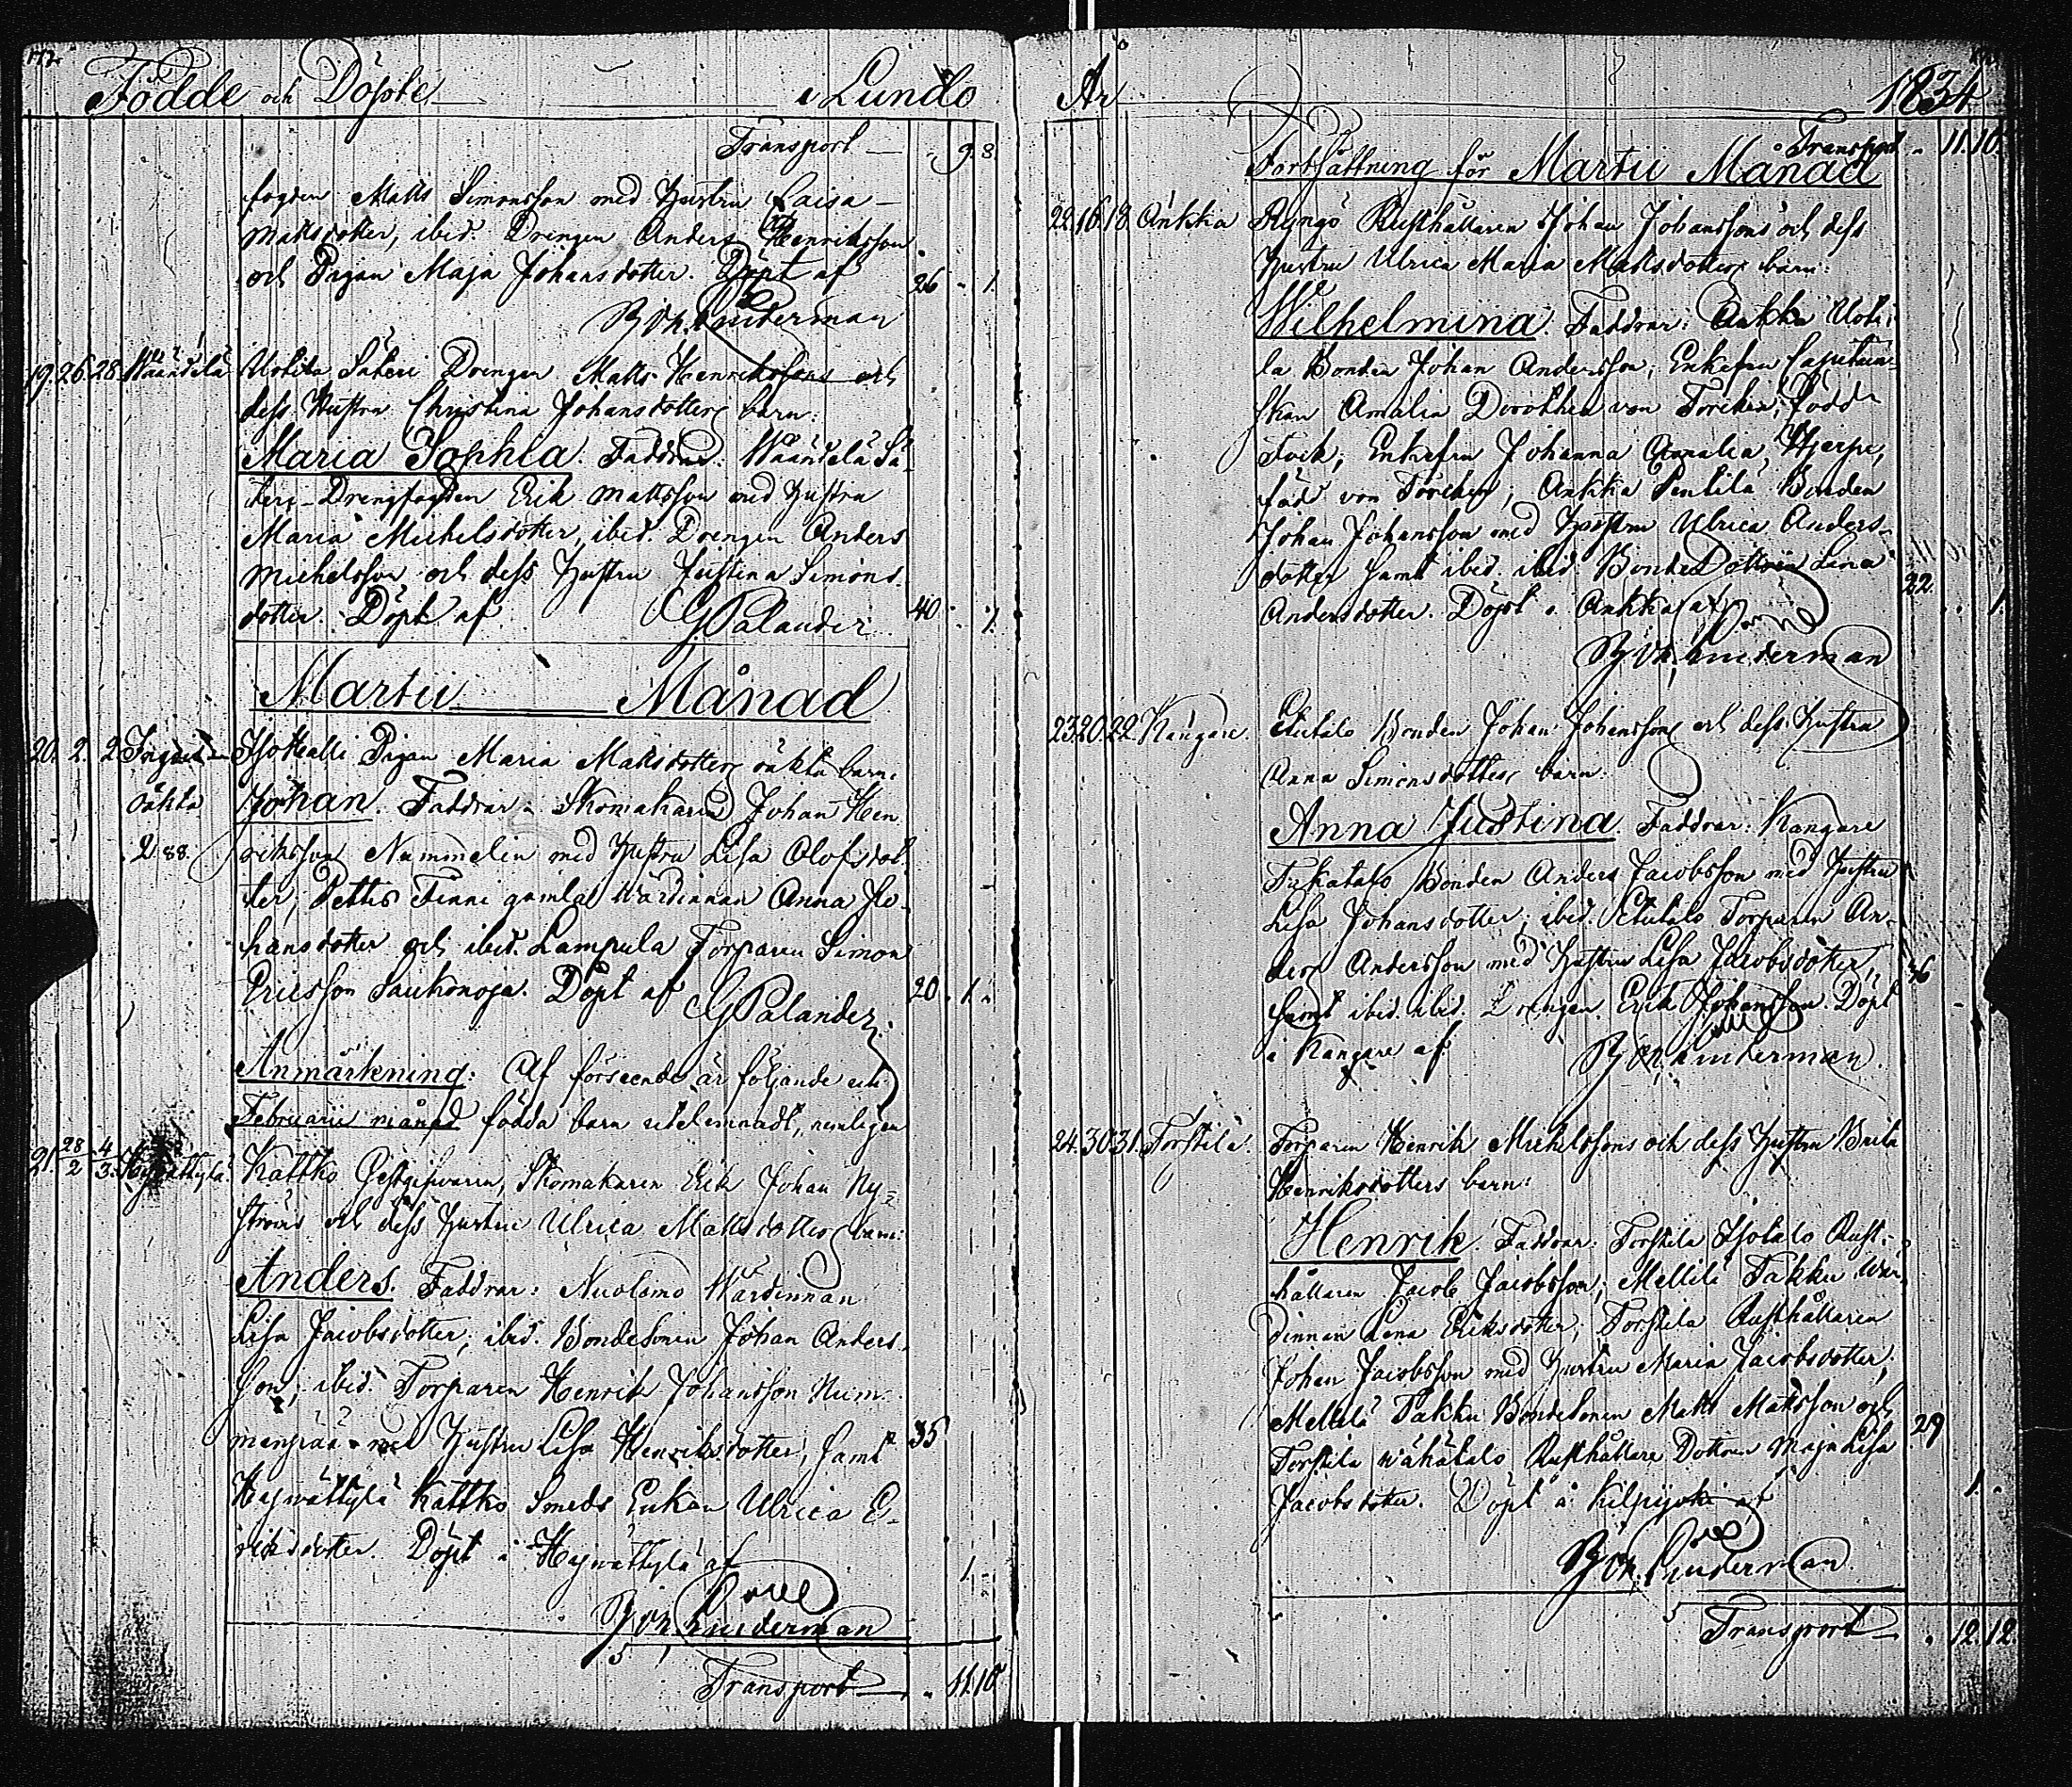 Födde och Döpte i Lundo
Transport 9. 8.
fogden Matts Simonsson med Hustru Caisa
Mattsdotter, ibid. Drengen Anders Henriksson
och Pigan Maja Johansdotter. Döpt af 26 1
Joh. Linderman
19. 26. 28. Wääntelä Uotila Säteri Drengen Matts Henrikssons och
dess Hustru Christina Johansdotters barn:
Maria Sophia. Faddrar: Wääntelä Sä-
teri-Drengfogden Erik Mattsson med Hustru
Maria Michelsdotter, ibid. Drengen Anders
Michelsson och dess Hustru Justina Simons-
dotter. Döpt af G Palander 40 1.
Martii Månad
20. 2. 2. Isotalli Pigan Maria Mattsdotters oäkta barn:
oäkta Johan. Faddrar: Skomakaren Johan Hen-
2 88. riksson Nummelin med Hustru Lisa Olofsdot-
ter, Pettis Finni gamla Wärdinnan Anna Jo-
hansdotter och ibid. Lampula Torparen Simon
Ericsson Saukonoja. Döpt af 20 1
G Palander
Anmärkning: Af förseende är följande uti
Februarii månad födda barn utelemnadt, nemligen
21. 28/2 4/3 Kattko Gestgifvaren, Skomakaren Erik Johan Ny-
ströms och dess Hustru Ulrica Mattsdotters barn:
Anders. Faddrar: Nuolemo Wärdinnan
Lisa Jacobsdotter, ibid. Bondesonen Johan Anders-
son, ibid. Torparen Henrik Johansson Num-
menpää med Hustru Lisa Henriksdotter, samt 35
Hypwättylä Kattko Smeds Enkan Ulrica E-
riksdotter. Döpt i Hypwättylä af 1
Joh. Linderman
Transport 11. 10
År 1834
Transport 11. 10.
Fortsättning för Martii Månad
22. 16. 18. Ankka Ryngö Rusthållaren Johan Johanssons och dess
Hustru Ulrica Maria Mattsdotters barn:
Wilhelmina. Faddrar: Ankka Uoti-
la Bonden Johan Andersson, Enkefru Capitein-
skan Amalia Dorothea von Torcken, född
Fock, Enkefru Johanna Amalia Hjerpe,
född von Torcken, Ankka Pentilä Bonden
Johan Johansson med Hustru Ulrica Anders-
dotter samt ibid. ibid. Bonde Dottren Lena 22.
Andersdotter. Döpt i Ankka af 1.
Joh. Linderman
23. 20. 22. Kangare. Alutalo Bonden Johan Johanssons och dess Hustru
Anna Simonsdotters barn:
Anna Justina. Faddrar: Kangare
Bonden Anders Jacobsson med Hustru
Lisa Johansdotter, ibid. Alutalo Torparen An-
ders Andersson med Hustru Lisa Jacobsdotter,
samt ibid. ibid. Drengen Erik Johansson. Döpt
i Kangare af
Joh. Linderman
24. 30. 31. Torstila. Torparen Henrik Michelssons och dess Hustru Brita
Henriksdotters barn:
Henrik. Faddrar: Torstila Isotalo Rust-
hållaren Jacob Jacobsson, Mellilä Takku Wär-
dinnan Lena Eriksdotter, Torstila Rusthållaren
Johan Jacobsson med Hustru Maria Jacobsdotter,
Mellilä Takku Bondesonen Matts Mattsson och
Torstila Wähätalo Rusthållare Dottren Maja Lisa 29
Jacobsdotter. Döpt i Kilpijoki af 1.
Joh. Linderman
Transport 12. 12.